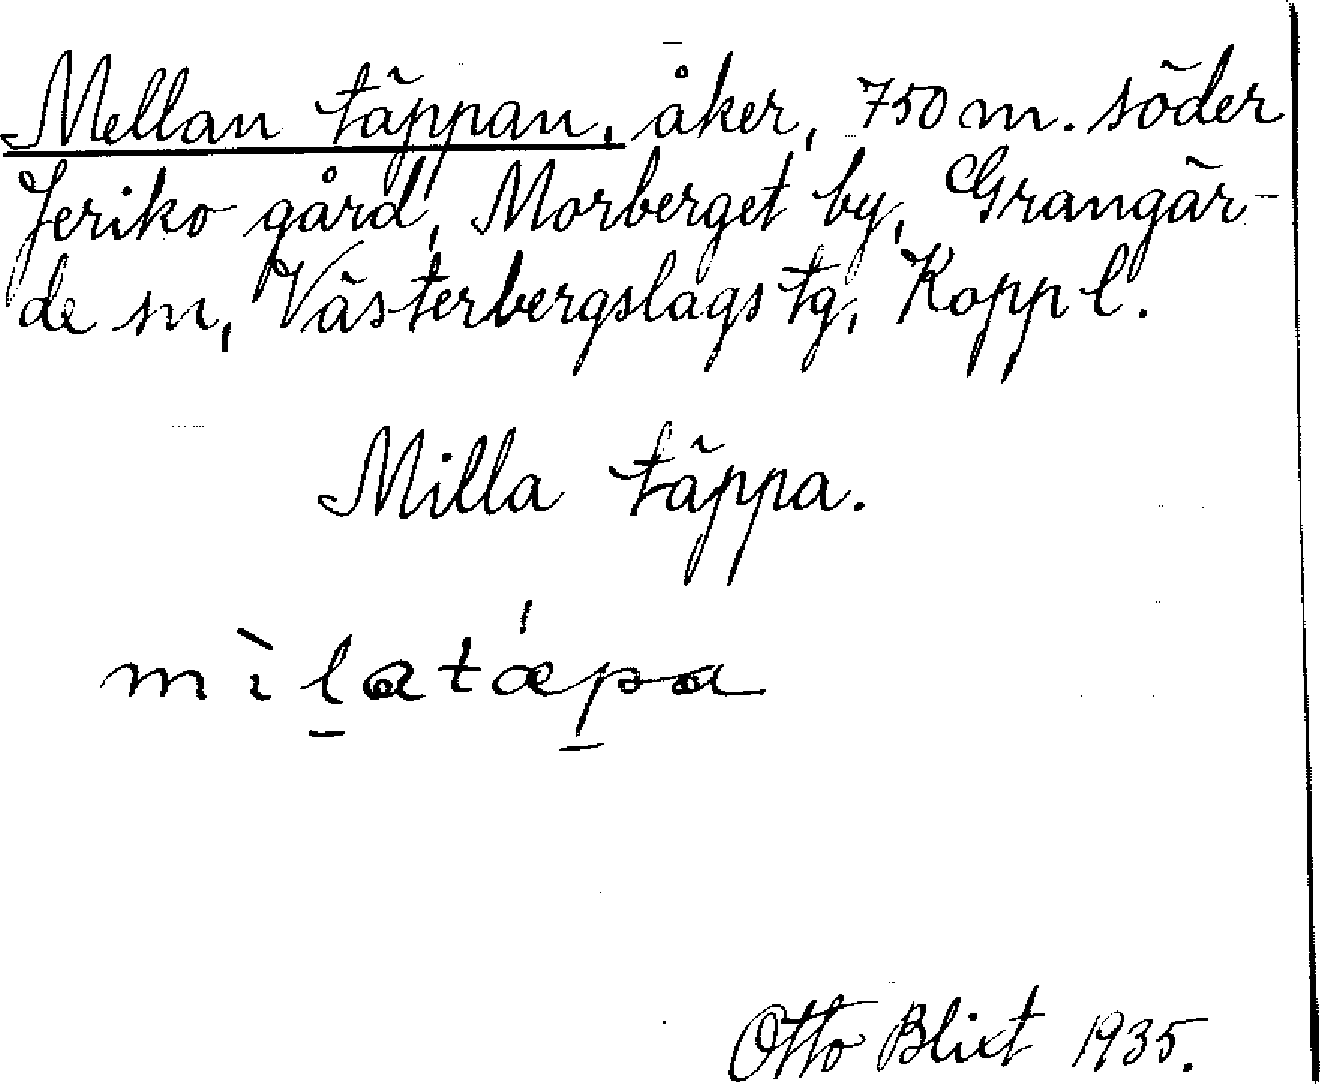 Mellan täppan, åker, 750 m. söder
Jeriko gård, Morberget by, Grangär-
de sn, Västerbergslags tg, Kopp l.
Milla täppa.
mìl̠atǽp̠a
Otto Blixt 1935.